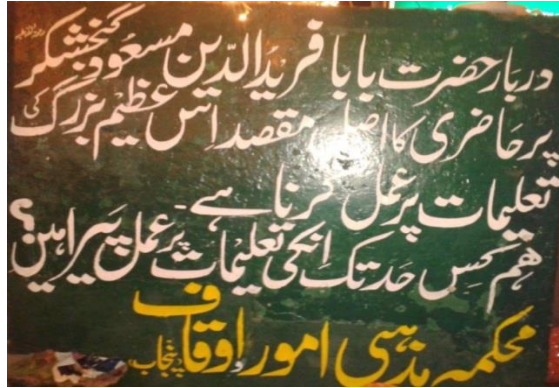 دربار حضرت بابا فریدُ الدّین مسعُود گنجشکر
پر حَاضری کا اصل مقصد اس عظیم بزرگ کی
تعلیمات پر عمل کرنا ہے۔
ھم کِس حَد تک انکی تعلیمات پر عمل پَیرا ہیں؟
محکمہ مذہبی امور و اوقاف پنجاب